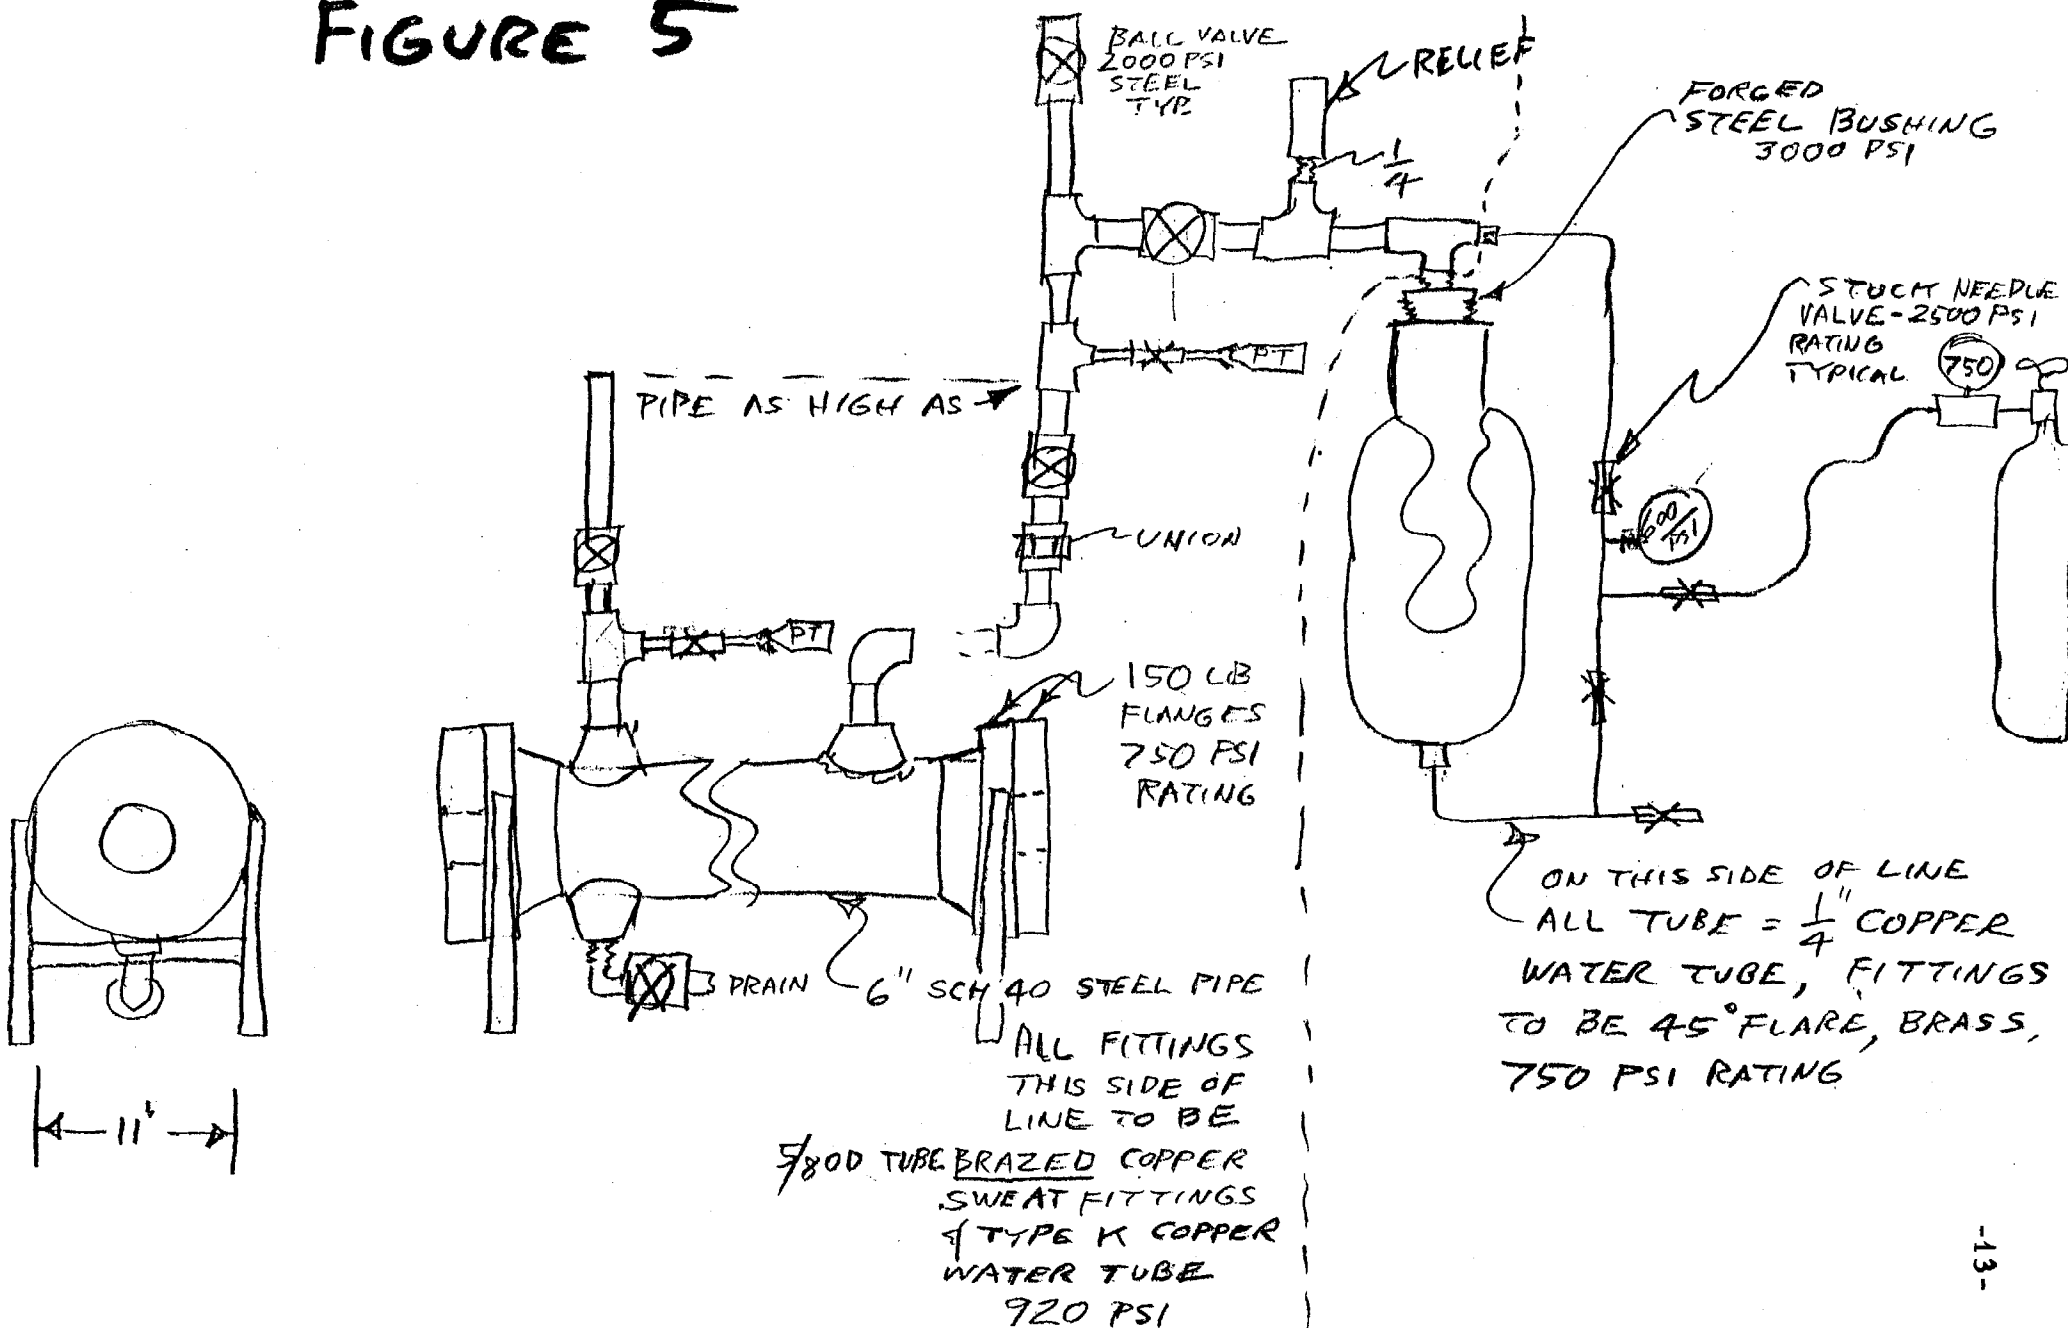 FIGURE 5
BALL VALVE
2000 PSI
STEEL
TYP.
RELIEF
1/4
FORGED
STEEL BUSHING
3000 PSI
STUCK NEEDLE
VALVE-2500 PSI
RATING
TYPICAL
750
PIPE AS HIGH AS
PT
600
PSI
UNION
PT
150 LB
FLANGES
750 PSI
RATING
DRAIN
6" SCH 40 STEEL PIPE
11'
ALL FITTINGS
THIS SIDE OF
LINE TO BE
5/8 OD TUBE BRAZED COPPER
SWEAT FITTINGS
& TYPE K COPPER
WATER TUBE
920 PSI
ON THIS SIDE OF LINE
ALL TUBE = 1/4" COPPER
WATER TUBE, FITTINGS
TO BE 45° FLARE, BRASS,
750 PSI RATING
-13-